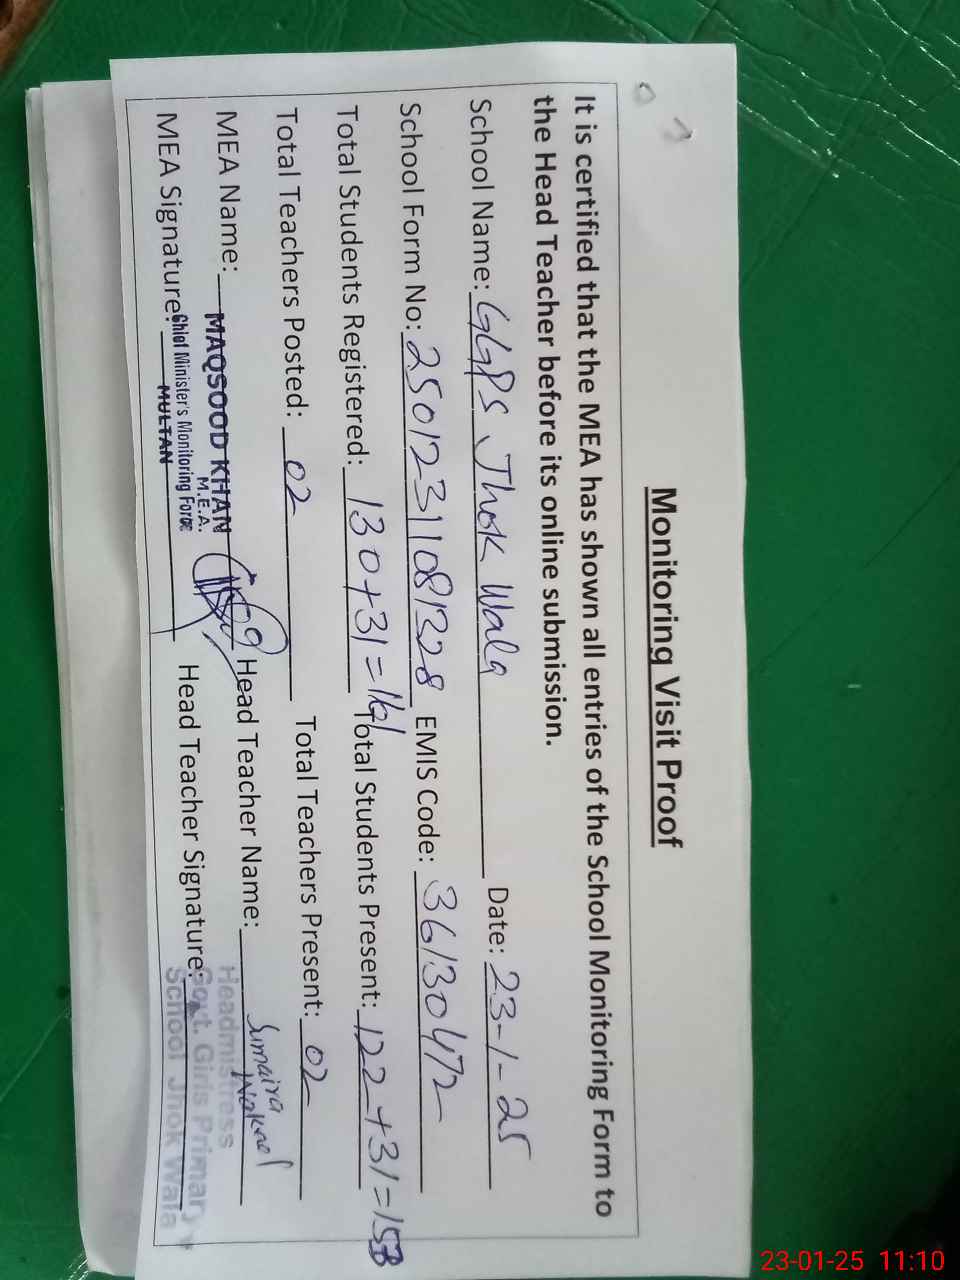 Monitoring Visit Proof
It is certified that the MEA has shown all entries of the School Monitoring Form to
the Head Teacher before its online submission.
School Name: GGPS Jhok Wala Date: 23-1-25
School Form No: 25012311081328 EMIS Code: 36130472
Total Students Registered: 130+31=161 Total Students Present: 122+31=153
Total Teachers Posted: 02 Total Teachers Present: 02
MEA Name: MAQSOOD KHAN Head Teacher Name: Sumaira
M.E.A.
MEA Signature: Chief Minister's Monitoring Force Head Teacher Signature:
MULTAN
Headmistress
Govt. Girls Primary
School Jhok Wala
23-01-25 11:10